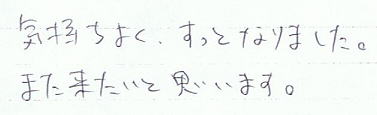 気持ちよく、すっとなりました。
また来たいと思います。